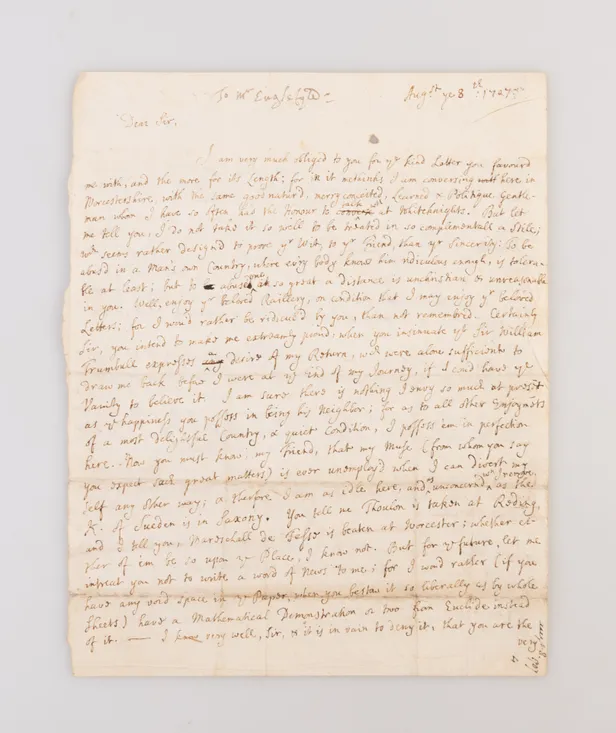 To Mr Englefyld -
Augst ye 8th: 1707
Dear Sir,
I am very much obliged to you for yr kind Letter you favourd
me with, and the more for its Length; for in it methinks I am conversing with here in
Worcestershire, with the same good naturd, merry conceited, Learned & Politique Gentle-
man whom I have so often had the Honour to talk with at Whiteknights. But let
me tell you, I do not take it so well to be treated in so complementall a Stile;
wch seems rather designd to prove yr Wit, to yr Friend, than yr Sincerity: To be
abusd in a Man's own Country, where evry body knows him ridiculous enough, is tolera-
ble at least; but to abuse one at so great a distance is unchristian & unreasonable
in you. Well, enjoy yr beloved Raillery, on condition that I may enjoy yr beloved
Letters; for I woud rather be ridiculd by you, than not remembred. Certainly
Sir, you intend to make me extreamly proud, when you insinuate yt Sir William
Trumbull expresses any desire of my Return, wch were alone sufficient to
draw me back before I were at ye End of my Journey, if I coud have ye
Vanity to believe it. I am sure there is nothing I envy so much at present
as ye happiness you possess in being his Neighbor; for as to all other Enjoymts
of a most delightful Country, & quiet Condition, I possess 'em in perfection
here. Now you must know, my Friend, that my Muse (from whom you say
you expect such great matters) is ever unemployd when I can divert my
self any other way; & therfore I am as idle here, and as unconcernd wth as the
K. of Sueden is in Saxony. You tell me Thoulon is taken at Reding,
and I tell you, Mareschall de Tesse is beaten at Worcester; whether ei-
ther of 'em be so upon ye Place, I know not. But for ye future, let me
intreat you not to write a word of News to me; for I woud rather (if you
have any void space in yr Paper, when you bestow it so liberally as by whole
Sheets) have a Mathematical Demonstration or two from Euclide instead
of it. — I know very well, Sir, & it is in vain to deny it, that you are the
very